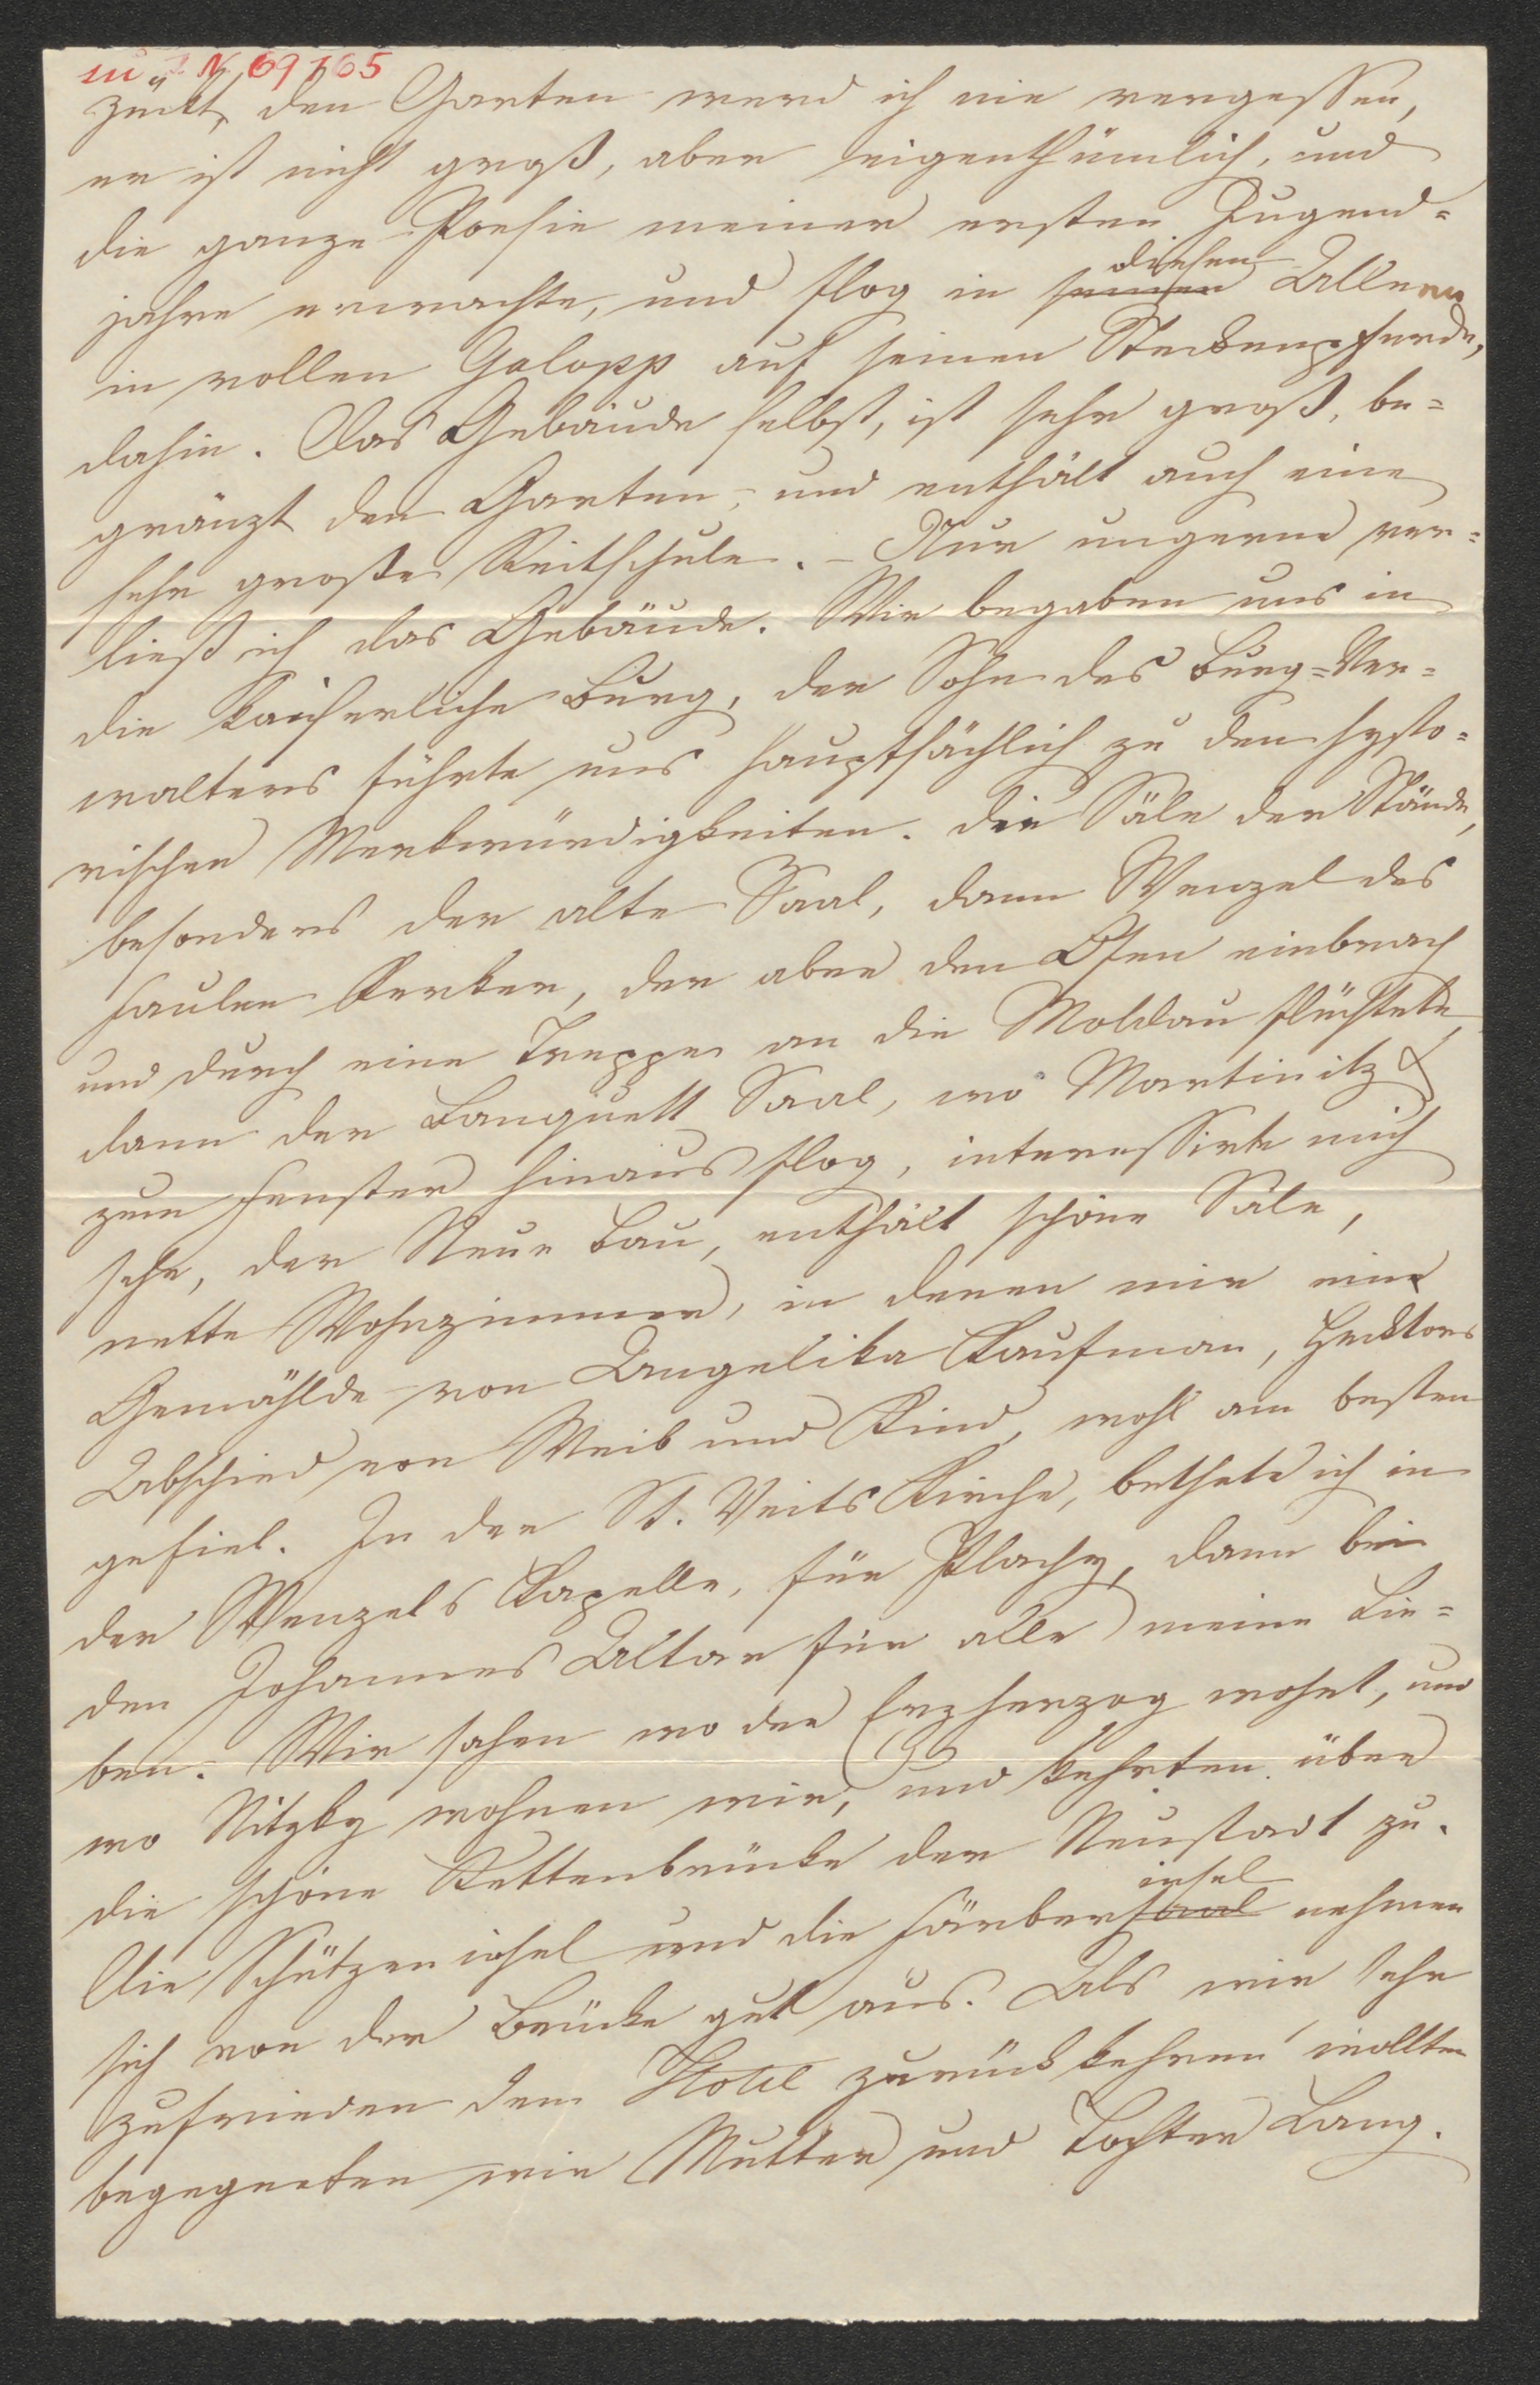 zu I N 69765
zückt, den Garten werd ich nie vergessen,
er ist nicht groß, aber eigenthümlich, und
die ganze Poesie meiner ersten Jugend=
jahre erwachte, und flog in seinen diesen Alleen
in vollen Galopp auf seinen Steckenpferde,
dahin. Das Gebäude selbst, ist sehr groß, be=
gränzt den Garten, und enthält auch eine
sehr große Reitschule. – Nur ungerne ver=
ließ ich das Gebäude. Wir begaben uns in
die kaiserliche Burg, der Sohn des Burg=Ver=
walters führte uns hauptsächlich zu den hysto=
rischen Merkwürdigkeiten. Die Säle der Stände,
besonders der alte Saal, dann Wenzel des
Faulen Kerker, der aber den Ofen einbrach
und durch eine Treppe an die Moldau flüchtete,
dann der Banquett Saal, wo Martinitz &
zum Fenster hinaus flog, interessirte mich
sehr, der Neue Bau, enthält schöne Säle,
nette Wohnzimmer, in denen mir eine
Gemählde von Angelika Kaufman, Hecktors
Abschied von Weib und Kind, wohl am besten
gefiel. In der St. Veits Kirche, bethete ich in
der Wenzels Kapelle, für Plachy, dann bei
den Johannes Altar für alle meine Lie=
ben. Wir sahen wo der Erzherzog wohnt, und
wo Nitzky wohnen wir, und kehrten über
die schöne Kettenbrücke der Neustadt zu.
Die Schützeninsel und die Färbersaal insel nehmen
sich von der Brücke gut aus. Als wir sehr
zufrieden dem Hotel zurück kehren wollten
begegneten wir Mutter und Tochter Lang.